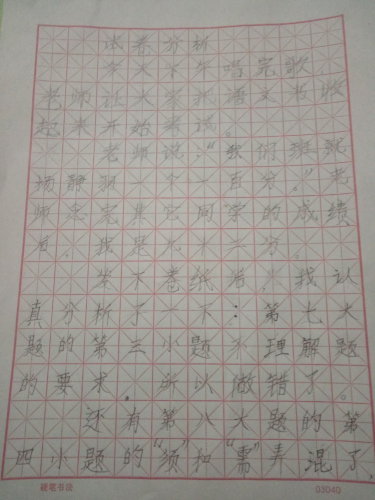 试卷分析
今天下午唱完歌
老师让大家把语文书收
起来开始考试。
老师说:“我们班就
杨静羽一个一百分。”老
师念完其它同学的成绩
后,我是九十二分。
发下卷纸后,我认
真分析了一下:第七大
题的第三小题不理解题
的要求,所以做错了。
还有第八大题的第
四小题的“须”和“需”弄混了,
硬笔书法 03040